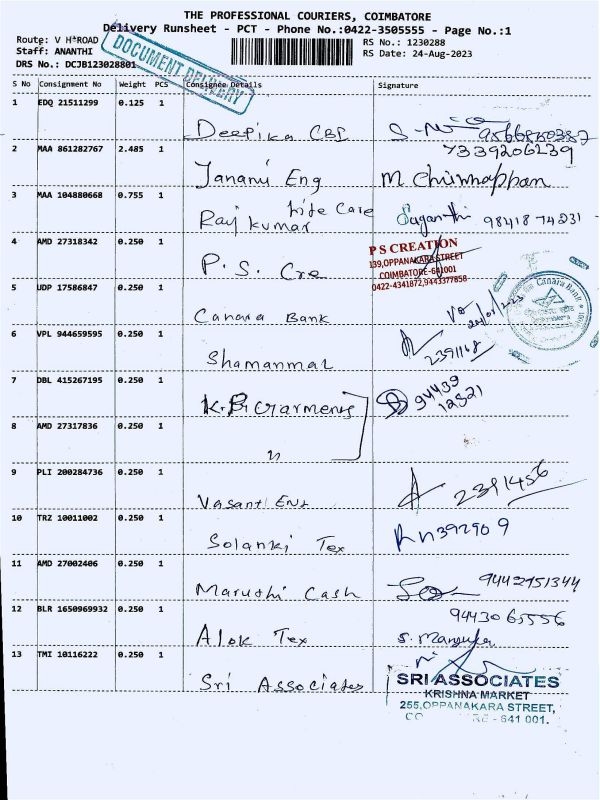 THE PROFESSIONAL COURIERS, COIMBATORE
Delivery Runsheet - PCT - Phone No.:0422-3505555 - Page No.:1
Route: V H*ROAD
Staff: ANANTHI
DRS No.: DCJB123028801
DOCUMENT DELIVERY
RS No.: 1230288
RS Date: 24-Aug-2023
S No Consignment No Weight PCS Consignee Details Signature
1 EDQ 21511299 0.125 1 Deepika CBE 9566850387
2 MAA 861282767 2.485 1 Janani Eng 7339206239
M Chinnappan
3 MAA 104880668 0.755 1 Life Care
Rajkumar Suganthi 98418 74231
4 AMD 27318342 0.250 1 P. S. Cre
P S CREATION
139,OPPANAKARA STREET
COIMBATORE-641001
0422-4341872,9443377858
5 UDP 17586847 0.250 1 Canara Bank
Canara Bank
6 VPL 944659595 0.250 1 Shamanmal 2391168
7 DBL 415267195 0.250 1 K.B. Garments 94439
12321
8 AMD 27317836 0.250 1 "
9 PLI 200284736 0.250 1 Vasant Ent 2391456
10 TRZ 10011002 0.250 1 Solanki Tex
11 AMD 27002406 0.250 1 Maruthi Cash 9442951344
12 BLR 1650969932 0.250 1 Alok Tex 9443065556
13 TMI 10116222 0.250 1 Sri Associates
SRI ASSOCIATES
KRISHNA MARKET
255,OPPANAKARA STREET,
641 001.